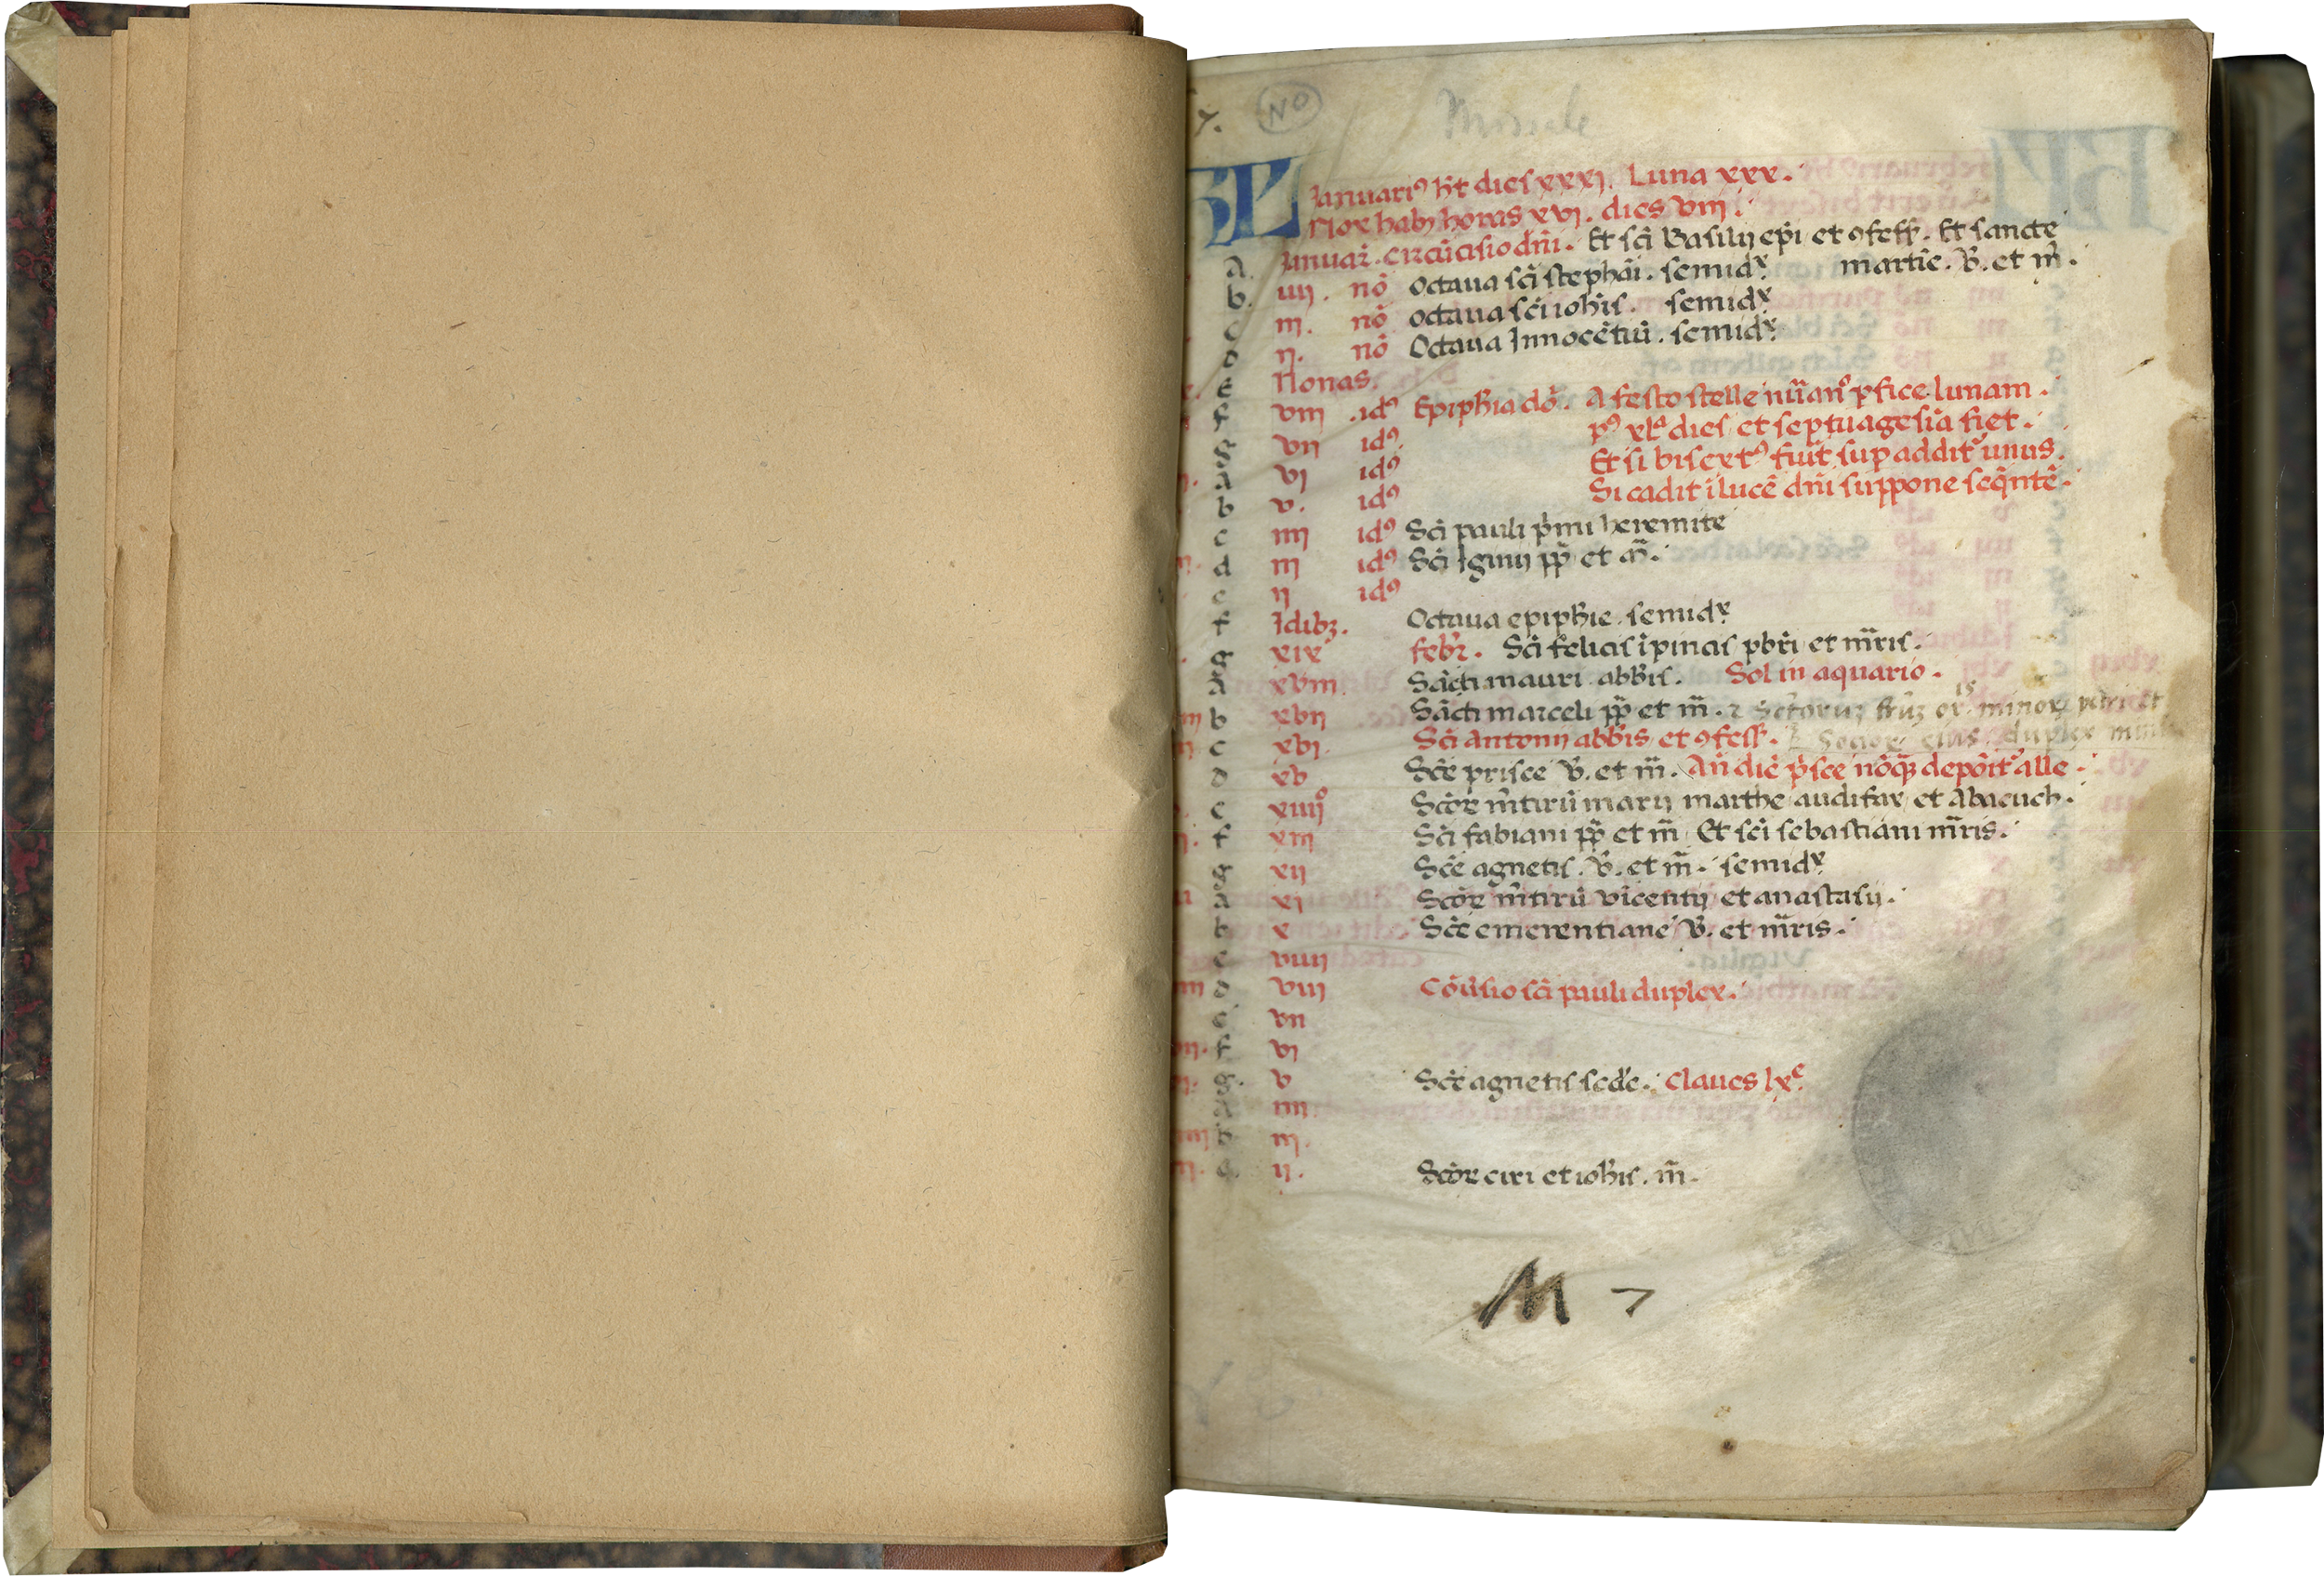 7. NO Missale
KL Januariꝰ ht̄ dies xxxj. Luna xxx.
Nox habꝫ horas xvj. dies viij.
A Januar̄. Circūcisio dn̄i. Et sc̄i Basilij ep̄i et ꝯfess̄. Et sancte
b. iiij. nō Octaua sc̄i stephāi. semidx̄ martīe. V̄. et m̄.
c iij. nō octaua sc̄i ioh̄is. semidx̄
d ij. nō Octaua Innocētiū. semidx̄
e Nonas.
f viij .idꝰ Epiph̄ia dō. A festo stelle nūan̊ ꝑfice lunam.
g vij idꝰ pꝰ xlᵃ dies et septuagesīa fiet.
A vj idꝰ Et si bisextꝰ fūit sup addit᷑ unus.
b v. idꝰ Si cadit ī lucē dn̄i suppone seq̄ntē.
c iiij idꝰ Sc̄i pauli p̄mi heremite
d iij idꝰ Sc̄i Iginij pp̄ et m̄.
e ij idꝰ
f Idibꝫ. Octaua epiph̄ie. semidx̄
g xix febr̄. Sc̄i felicis ī pincis pbr̄i et m̄ris.
A xviij Sācti mauri abb̄is. Sol in aquario.
b xvij Sācti marceli pp̄ et m̄.
c xvj Sc̄i Antonij abb̄is et ꝯfess̄. duplex
d xv Sc̄e prisce V̄. et m̄. An̄ diē p̄sce nōqꝫ depōit᷑ alle.
e xiiijº Sc̄oꝝ m̄tirū marij marthe audifax et Abacuch.
f xiij Sc̄i fabiani pp̄ et m̄ Et sc̄i sebastiani m̄ris.
g xij Sc̄e agnetis. V̄. et m̄. semidx̄
A xj Sc̄oꝝ m̄tirū vīcentij et anastasij.
b x Sc̄e emerentiane V̄. et m̄ris.
c viiij
d viij Cōūsio sc̄i pauli duplex.
e vij
f vj
g. v Sc̄e agnetis sc̄de. Claues lxᵉ
A iiij
b iij.
c ij. Sc̄oꝝ ciri et ioh̄is. m̄.
M 7